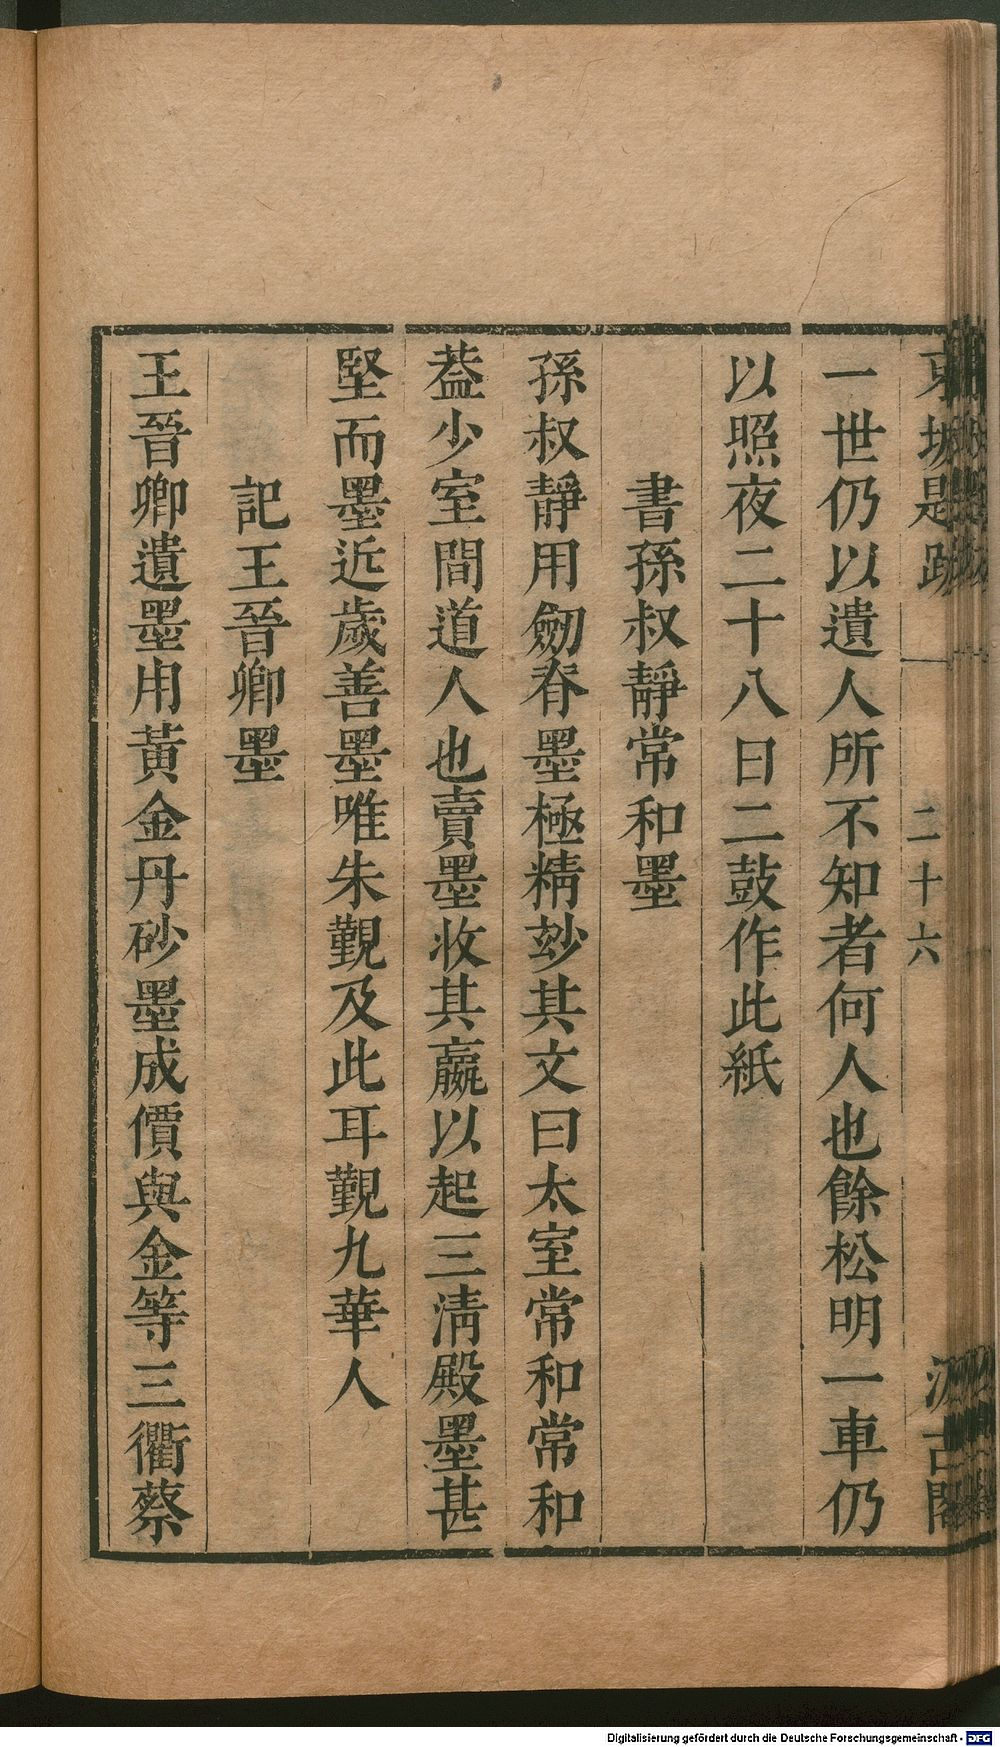 東坡題跋 二十六 汲古閣
一世仍以遺人所不知者何人也餘松明一車仍
以照夜二十八日二鼓作此紙
書孫叔靜常和墨
孫叔靜用劒脊墨極精玅其文曰太室常和常和
葢少室間道人也賣墨收其羸以起三清殿墨甚
堅而墨近歲善墨唯朱覲及此耳覲九華人
記王晉卿墨
王晉卿遺墨用黃金丹砂墨成價與金等三衢蔡
Digitalisierung gefördert durch die Deutsche Forschungsgemeinschaft - DFG